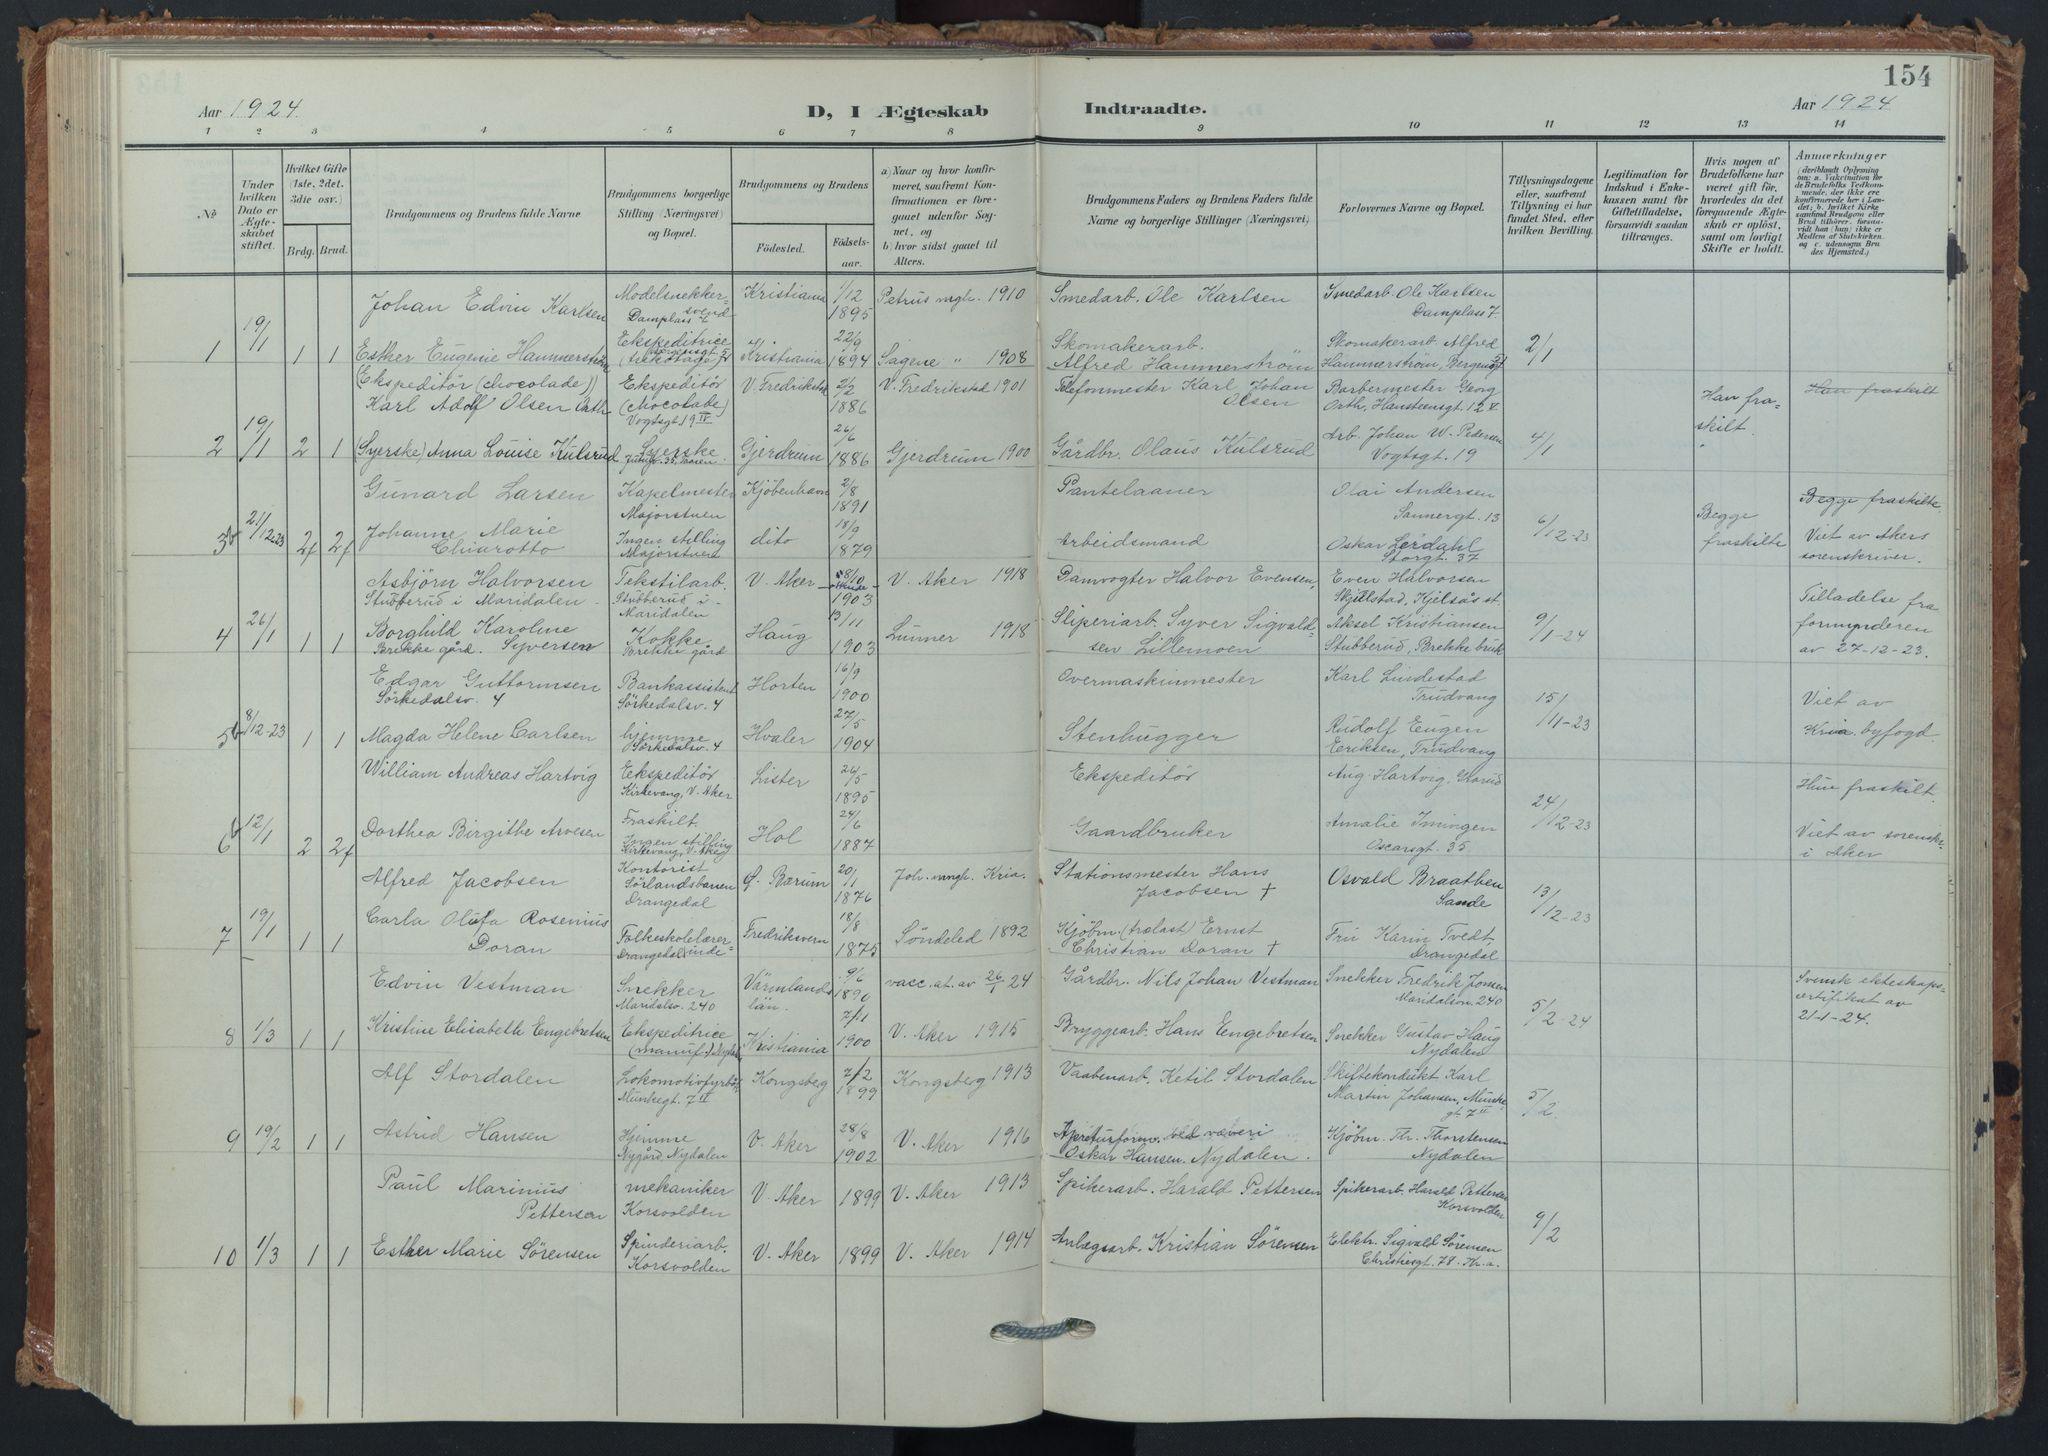 154
Aar 1924.
D, I Ægteskab Indtraadte.
Aar 1924
1 2 3 4 5 6 7 8 9 10 11 12 13 14
№
Under hvilken Dato er Ægteskabet stiftet.
Hvilket Gifte (1ste, 2det, 3die osv.)
Brdg. Brud.
Brudgommens og Brudens fulde Navne
Brudgommens borgerlige Stilling (Næringsvei) og Bopæl.
Brudgommens og Brudens
Födested.
Födsels-aar.
a) Naar og hvor konfirmeret, saafremt Konfirmationen er foregaaet udenfor Sognet, og
b) hvor sidst gaaet til Alters.
Brudgommens Faders og Brudens Faders fulde Navne og borgerlige Stillinger (Næringsvei)
Forlovernes Navne og Bopæl.
Tillysningsdagene eller, saafremt Tillysning ei har fundet Sted, efter hvilken Bevilling.
Legitimation for Indskud i Enkekassen samt for Giftetilladelse, forsaavidt saadan tiltrænges.
Hvis nogen af Brudefolkene har været gift för, hvorledes da det foregaaende Ægteskab er oplöst, samt om lovligt Skifte er holdt.
Anmærkninger
(deriblandt Oplysning om: a. Vakcination for de Brudefolks Vedkommende, der ikke ere konfirmerede her i Landet; b. hvilket Kirkesamfund Brudgom eller Brud tilhörer, forsaavidt han (hun) ikke er Medlem af Statskirken og c. udensogns Brudes Hjemsted.)
Johan Edvin Karlsen Modelsnekkersvend Damplass 7 Kristiania 1/12 1895 Petrus mgh. 1910 Smedarb. Ole Karlsen Smedarb. Ole Karlsen Damplass 7.
1 19/1 1 1 Esther Eugenie Hammerström Ekspeditrice (trikotage) Bergensgt. 5 Kristiania 22/9 1894 Sagene " 1908 Skomakerarb. Alfred Hammerström Skomakerarb. Alfred Hammerström, Bergensgt 2/1
(Ekspeditör (chocolade)) Karl Adolf Olsen Orth Ekspeditör (chocolade) Vogtsgt. 19 IV V. Fredrikstad 2/2 1886 V. Fredrikstad 1901 Telefonmester Karl Johan Olsen Barbermester Georg Orth, Hansteensgt. 12 V Han fraskilt. Han fraskilt
2 19/1 2 1 (Syerske) Anna Louise Kulsrud Syerske Gjerdrum 26/6 1886 Gjerdrum 1900 Gårdbr. Olaus Kulsrud Arb. Johan W. Pedersen Vogtsgt. 19 4/1
Gunard Larsen Kapelmester Majorstuen Kjöbenhavn 2/8 1891 Pantelaaner Olai Andersen Sannergt. 13 Begge fraskilte Begge fraskilte.
3b 21/12-23 2f 2f Johanne Marie Chiarotto Ingen stilling Majorstuen dito 18/9 1879 Arbeidsmand Oskar Lerdahl Storgt. 37 6/12-23 Viet av Akers sorenskriver.
Asbjörn Halvorsen Stubberud i Maridalen Tekstilarb. Stubberud i Maridalen V. Aker 8/10 1903 V. Aker 1918 Damvogter Halvor Evensen, Even Halvorsen Skjillstad, Kjelsås st. Tilladelse fra formynderen av 27-12-23.
4 26/1 1 1 Borghild Karoline Syversen Brekke gård. Kokke Brekke gård Haug 13/11 1903 Lunner 1918 Sliperiarb. Syver Sigvaldsen Lillemoen Aksel Kristiansen Stubberud, Brekke bruk 9/1-24
Edgar Guttormsen Sörkedalsv. 4 Bankassistent Sörkedalsv. 4 Horten 16/9 1900 Overmaskinmester Karl Lindestad Trudvang
5b 8/12-23 1 1 Magda Helene Carlsen hjemme Sörkedalsv. 4 Hvaler 27/5 1904 Stenhugger Rudolf Eugen Eeriksen, Trudvang 15/11-23 Viet av Kria. byfogd.
William Andreas Hartvig Eekspeditör Kirkevang, V. Aker Lister 26/5 1895 Ekspeditör Aug. Hartvig, Grorud Hun fraskilt.
6b 12/1 2 2f Dorthea Birgithe Arvesen Fraskilt. Ingen stilling Kirkevang, V. Aker Hol 24/6 1887 Gaardbruker Amalie Imingen Oscarsgt. 35 24/12-23 Viet av sorenskr. i Aker
Alfred Jacobsen Kontorist Sörlandsbanen Drangedal Ö. Bærum 20/1 1876 Joh. mngh. Kria. Stationsmester Hans Jacobsen † Osvald Braathen Sande
7 19/1 1 1 Carla Olufa Rosenius Doran Folkeskolelærerinde Drangedal Fredriksvern 18/8 1875 Söndeled 1892 Kjöbm. (trælast) Ernst Christian Doran † Fru Karin Tvedt, Drangedal 13/12-23
Edvin Vestman Snekker Maridalsv. 240 Värmlands län. 9/6 1890 vacc. at. av 26/1 24 Gårdbr. Nils Johan Vestman Snekker Fredrik Jonsen Maridalsvn. 240 Svensk ekteskapscertifikat av 21-1-24.
8 1/3 1 1 Kristine Elisabeth Engebretsen Ekspeditrice (manuf.) Nydalen Kristiania 7/11 1900 V. Aker 1915 Bryggearb. Hans Engebretsen Snekker Gustav Haug Nydalen 5/2-24
Alf Stordalen Lokomotivfyrböter Munkegt. 7 II Kongsberg 7/2 1899 Kongsberg 1913 Vaabenarb. Ketil Stordalen Skiftekondukt Karl Martin Johansen, Munkegt. 7 II
9 19/2 1 1 Astrid Hansen Hjemme Nygård, Nydalen V. Aker 28/8 1902 V. Aker 1916 Apreturform. ved væveri Oskar Hansen. Nydalen. Kjöbm. Th. Thorstensen Nydalen 5/2.
Paul Marinius Pettersen mekaniker Korsvolden V. Aker 1899 V. Aker 1913 Spikerarb. Harald Pettersen Spikerarb. Harald Pettersen Korsvolden
10 1/3 1 1 Esther Marie Sörensen Spinderiarb. Korsvolden V. Aker 1899 V. Aker 1914 Anlægsarb. Kristian Sörensen Elektr. Sigvald Sörensen Christiesgt. 78. Kr.a. 9/2